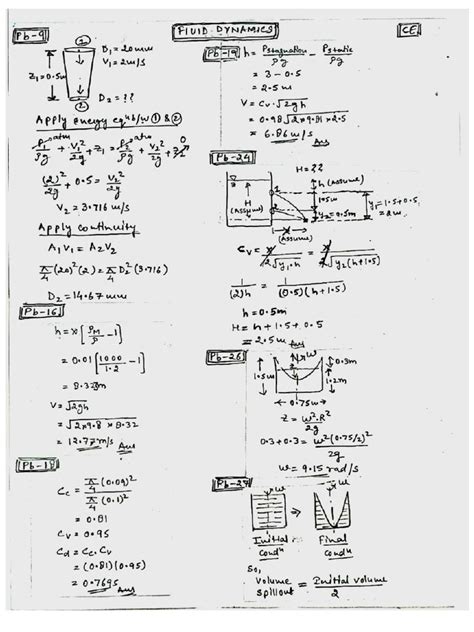 FLUID DYNAMICS
CE
Pb-9
①
D₁ = 20mm
V₁ = 2m/s
Z₁ = 0.5m
②
D₂ = ??
Apply energy eqⁿ b/w ① & ②
P₁/ρg + V₁²/2g + Z₁ = P₂/ρg + V₂²/2g + Z₂
(2)²/2g + 0.5 = V₂²/2g
V₂ = 3.716 m/s
Apply continuity
A₁V₁ = A₂V₂
π/4 (20)² (2) = π/4 D₂² (3.716)
D₂ = 14.67 mm
Pb-16
h = x [ρM/ρ - 1]
= 0.01 [1000/1.2 - 1]
= 8.32m
V = √2gh
= √2×9.8×8.32
= 12.77 m/s Ans
Pb-18
Cc = π/4 (0.09)² / π/4 (0.1)²
= 0.81
Cv = 0.95
Cd = Cc. Cv
= (0.81)(0.95)
= 0.7695 Ans
Pb-19
h = Pstagnation/ρg - Pstatic/ρg
= 3 - 0.5
= 2.5m
V = Cv. √2gh
= 0.98 √2×9.81×2.5
= 6.86 m/s Ans
Pb-24
H = ??
h (assume)
1.5m
y₁ = 1.5+0.5
= 2m
y₂ = 0.5m
H
(Assume)
1
2
x
(Assume)
Cv = x/2√y₁.h = x/2√y₂(h+1.5)
1/(2)h = 1/(0.5)(h+1.5)
h = 0.5m
H = h + 1.5 + 0.5
= 2.5m Ans
Pb-26
w
0.3m
1.5m
1.2m
0.75m
Z = w².R²/2g
0.3+0.3 = w²(0.75/2)²/2g
w = 9.15 rad/s
w
Initial
condⁿ
Final
condⁿ
So,
Volume spillout = Initial volume/2